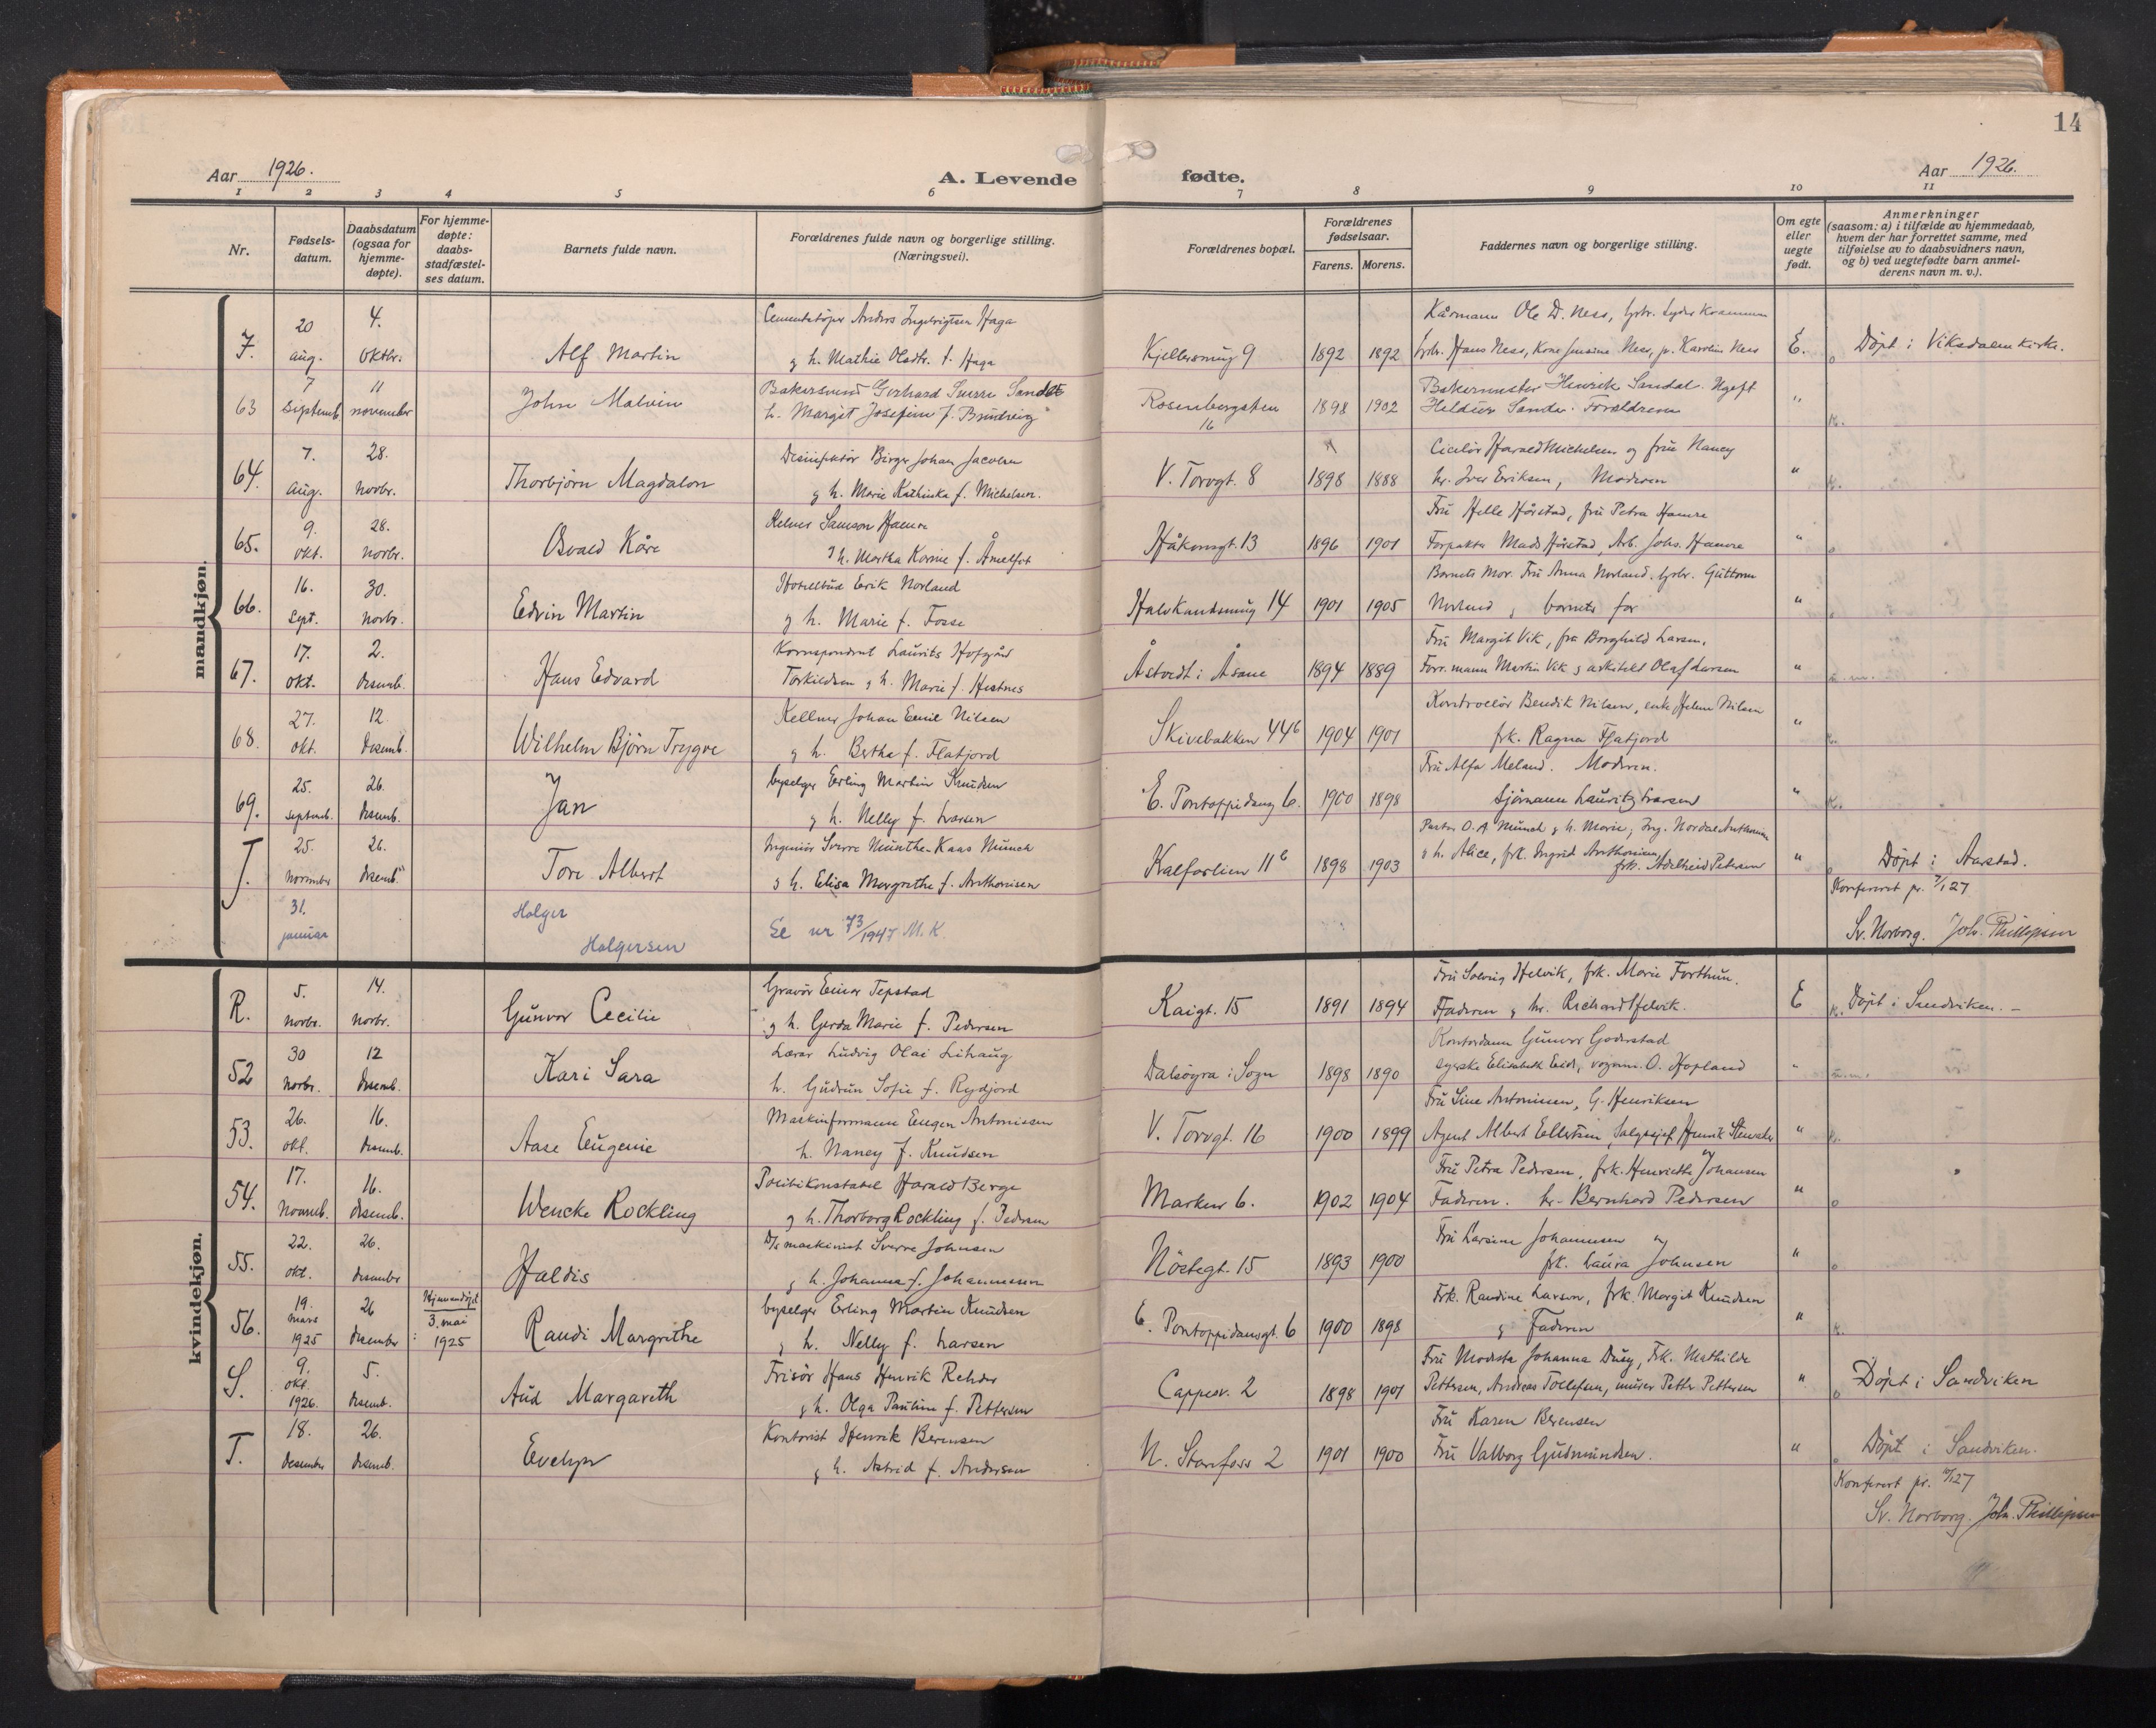 14
Aar 1926.
A. Levende
fødte.
Aar 1926.
1 2 3 4 5 6 7 8 9 10 11
Nr.
Fødsels-
datum.
Daabsdatum
(ogsaa for
hjemme-
døpte).
For hjemme-
døpte:
daabs-
stadfæstel-
ses datum.
Barnets fulde navn.
Forældrenes fulde navn og borgerlige stilling.
(Næringsvei).
Forældrenes bopæl.
Forældrenes
fødselsaar.
Farens. Morens.
Faddernes navn og borgerlige stilling.
Om egte
eller
uegte
født.
Anmerkninger
(saasom: a) i tilfælde av hjemmedaab,
hvem der har forrettet samme, med
tilføielse av to daabsvidners navn,
og b) ved uegtefødte barn anmel-
derens navn m. v.).
mandkjøn.
20 4. Anders Haga Ole D. Ness,
aug. oktbr. Alf Martin g h. Mathie Olsdtr. f. Haga 9 1892 1892 Hans Ness, Kone Jensine Ness, Ness E. Døpt i Viksdalen kirke.
7 11 Gerhard Bakermester Henrik Sandal.
63 septemb. november John Malvin h. Margit Josefine f. 16 1898 1902 Forældrene "
7. 28. Desinfektør Birger Johan Jacobsen Harald Michelsen og frue Nancy
64. aug. novbr. Thorbjörn Magdalon g h. Marie Kathinka f. Michelsen. V. Torvgt. 8 1898 1888 hr. Iver Eriksen, Moderen "
9. 28. Kelner Samson Hamre Fru Helle Hårstad, fru Petra Hamre
65. okt. novbr. Osvald Kåre g h. Martha Karine f. Åmelfot Håkonsgt. 13 1896 1901 Forpakter Mads Hårstad, Arb. Johs. Hamre "
16. 30. Hotellbud Erik Norland Barnets Mor. Fru Anna Norland. Guttorm
66. sept. novbr. Edvin Martin g h. Marie f. Fosse 14 1901 1905 Norland g barnets far "
17. 2. Korrespondent Laurits Hofgård Fru Margit Vik, fru Borghild Larsen,
67. okt. desemb. Hans Edvard Torkildsen g h. Marie f. Hestnes Åstvedt i Åsane 1894 1889 Forr.mann Martin Vik g arkitekt Olaf Larsen "
27. 12. Kellner Johan Emil Nilsen Kontrollör Bendik Nilsen, enke Helene Nilsen
68. okt. desemb. Wilhelm Björn Trygve g h. Bertha f. Flatjord Skivebakken 44b 1904 1901 frk. Ragna Flatjord "
25. 26. byselger Erling Martin Knudsen Fru Alfa Meland. Moderen.
69. septemb. desemb. Jan g h. Nelly f. Larsen E. Pontoppidansg 6. 1900 1898 Sjömann Lauritz Ivarsen "
25. 26. Ingeniör Sverre Munthe-Kaas Munch Pastor O. A. Munch g h. Marie, Ing. Nordal Anthonisen
T. november desemb. Tore Albert g h. Elisa Margrethe f. Anthonisen Kalfarlien 11b 1898 1903 g h. Alice, frk. Ingrid Anthonisen, frk. Adelheid Petersen " Döpt i Aarstad.
Konferert pr. 7/1 27
31. Holger
januar Holgersen Se nr 73/1947 M.K. Sv. Norborg. Joh. Phillipsen
kvindekjøn.
5. 14. Gravör Einar Tepstad Fru Solveig Helvik, frk. Marie Forthun.
R. novbr. novbr. Gunvor Cecilie g h. Gerda Marie f. Pedersen Kaigt. 15 1891 1894 Faderen g hr. Richard Helvik. E Döpt i Sandviken.
30 12 Lærer Ludvig Olai Lihaug Kontordame Gunvor Goderstad
52 novbr. desemb. Kari Sara h. Gudrun Sofie f. Rydjord Dalsöyra i Sogn 1898 1890 syerske Elisabeth Eide, vognm. O. Hopland "
26. 16. Maskinformann Eugen Antonissen Fru Sine Antonissen, G. Henriksen
53. okt. desemb. Aase Eugenie h. Nancy f. Knudsen V. Torvgt. 16 1900 1899 Agent Albert Ellertsen, Salgssjef Henrik "
17. 16. Politikonstabel Harald Berge Fru Petra Pedersen, frk. Henriette Johansen
54. Novemb. desemb. Wencke Rockling g h. Thorborg Rockling f. Pedersen Marken 6. 1902 1904 Faderen. hr. Bernhard Pedersen "
22. 26. D/s maskinist Sverre Johnsen Fru Larsine Johannesen
55. okt. desember Haldis g h. Johanna f. Johannessen Nöstegt. 15 1893 1900 frk. Laura Johnsen "
19. 26 Hjemmedöpt byselger Erling Martin Knudsen Frk. Randine Larsen, frk. Margit Knudsen
56. mars 1925 desember 3. mai 1925 Randi Margrethe g h. Nelly f. Larsen E. Pontoppidansgt. 6 1900 1898 g Faderen "
9. 5. Frisör Hans Henrik Rehder Fru Modesta Johanna Frk. Mathilde
S. okt. 1926. desemb. Aud Margareth g h. Olga Pauline f. Pettersen Cappesv. 2 1898 1901 Pettersen, Andreas Tollefsen, murer Petter Pettersen " Döpt i Sandviken
18. 26. Kontorist Henrik Berensen Fru Karen Berensen
T. desember desemb. Evelyn g h. Astrid f. Andersen N. Stamfoss 2 1901 1900 Fru Valborg Gudmundsen. " Döpt i Sandviken.
Konferert pr. 10/1 27
Sv. Norborg. Joh. Phillipsen